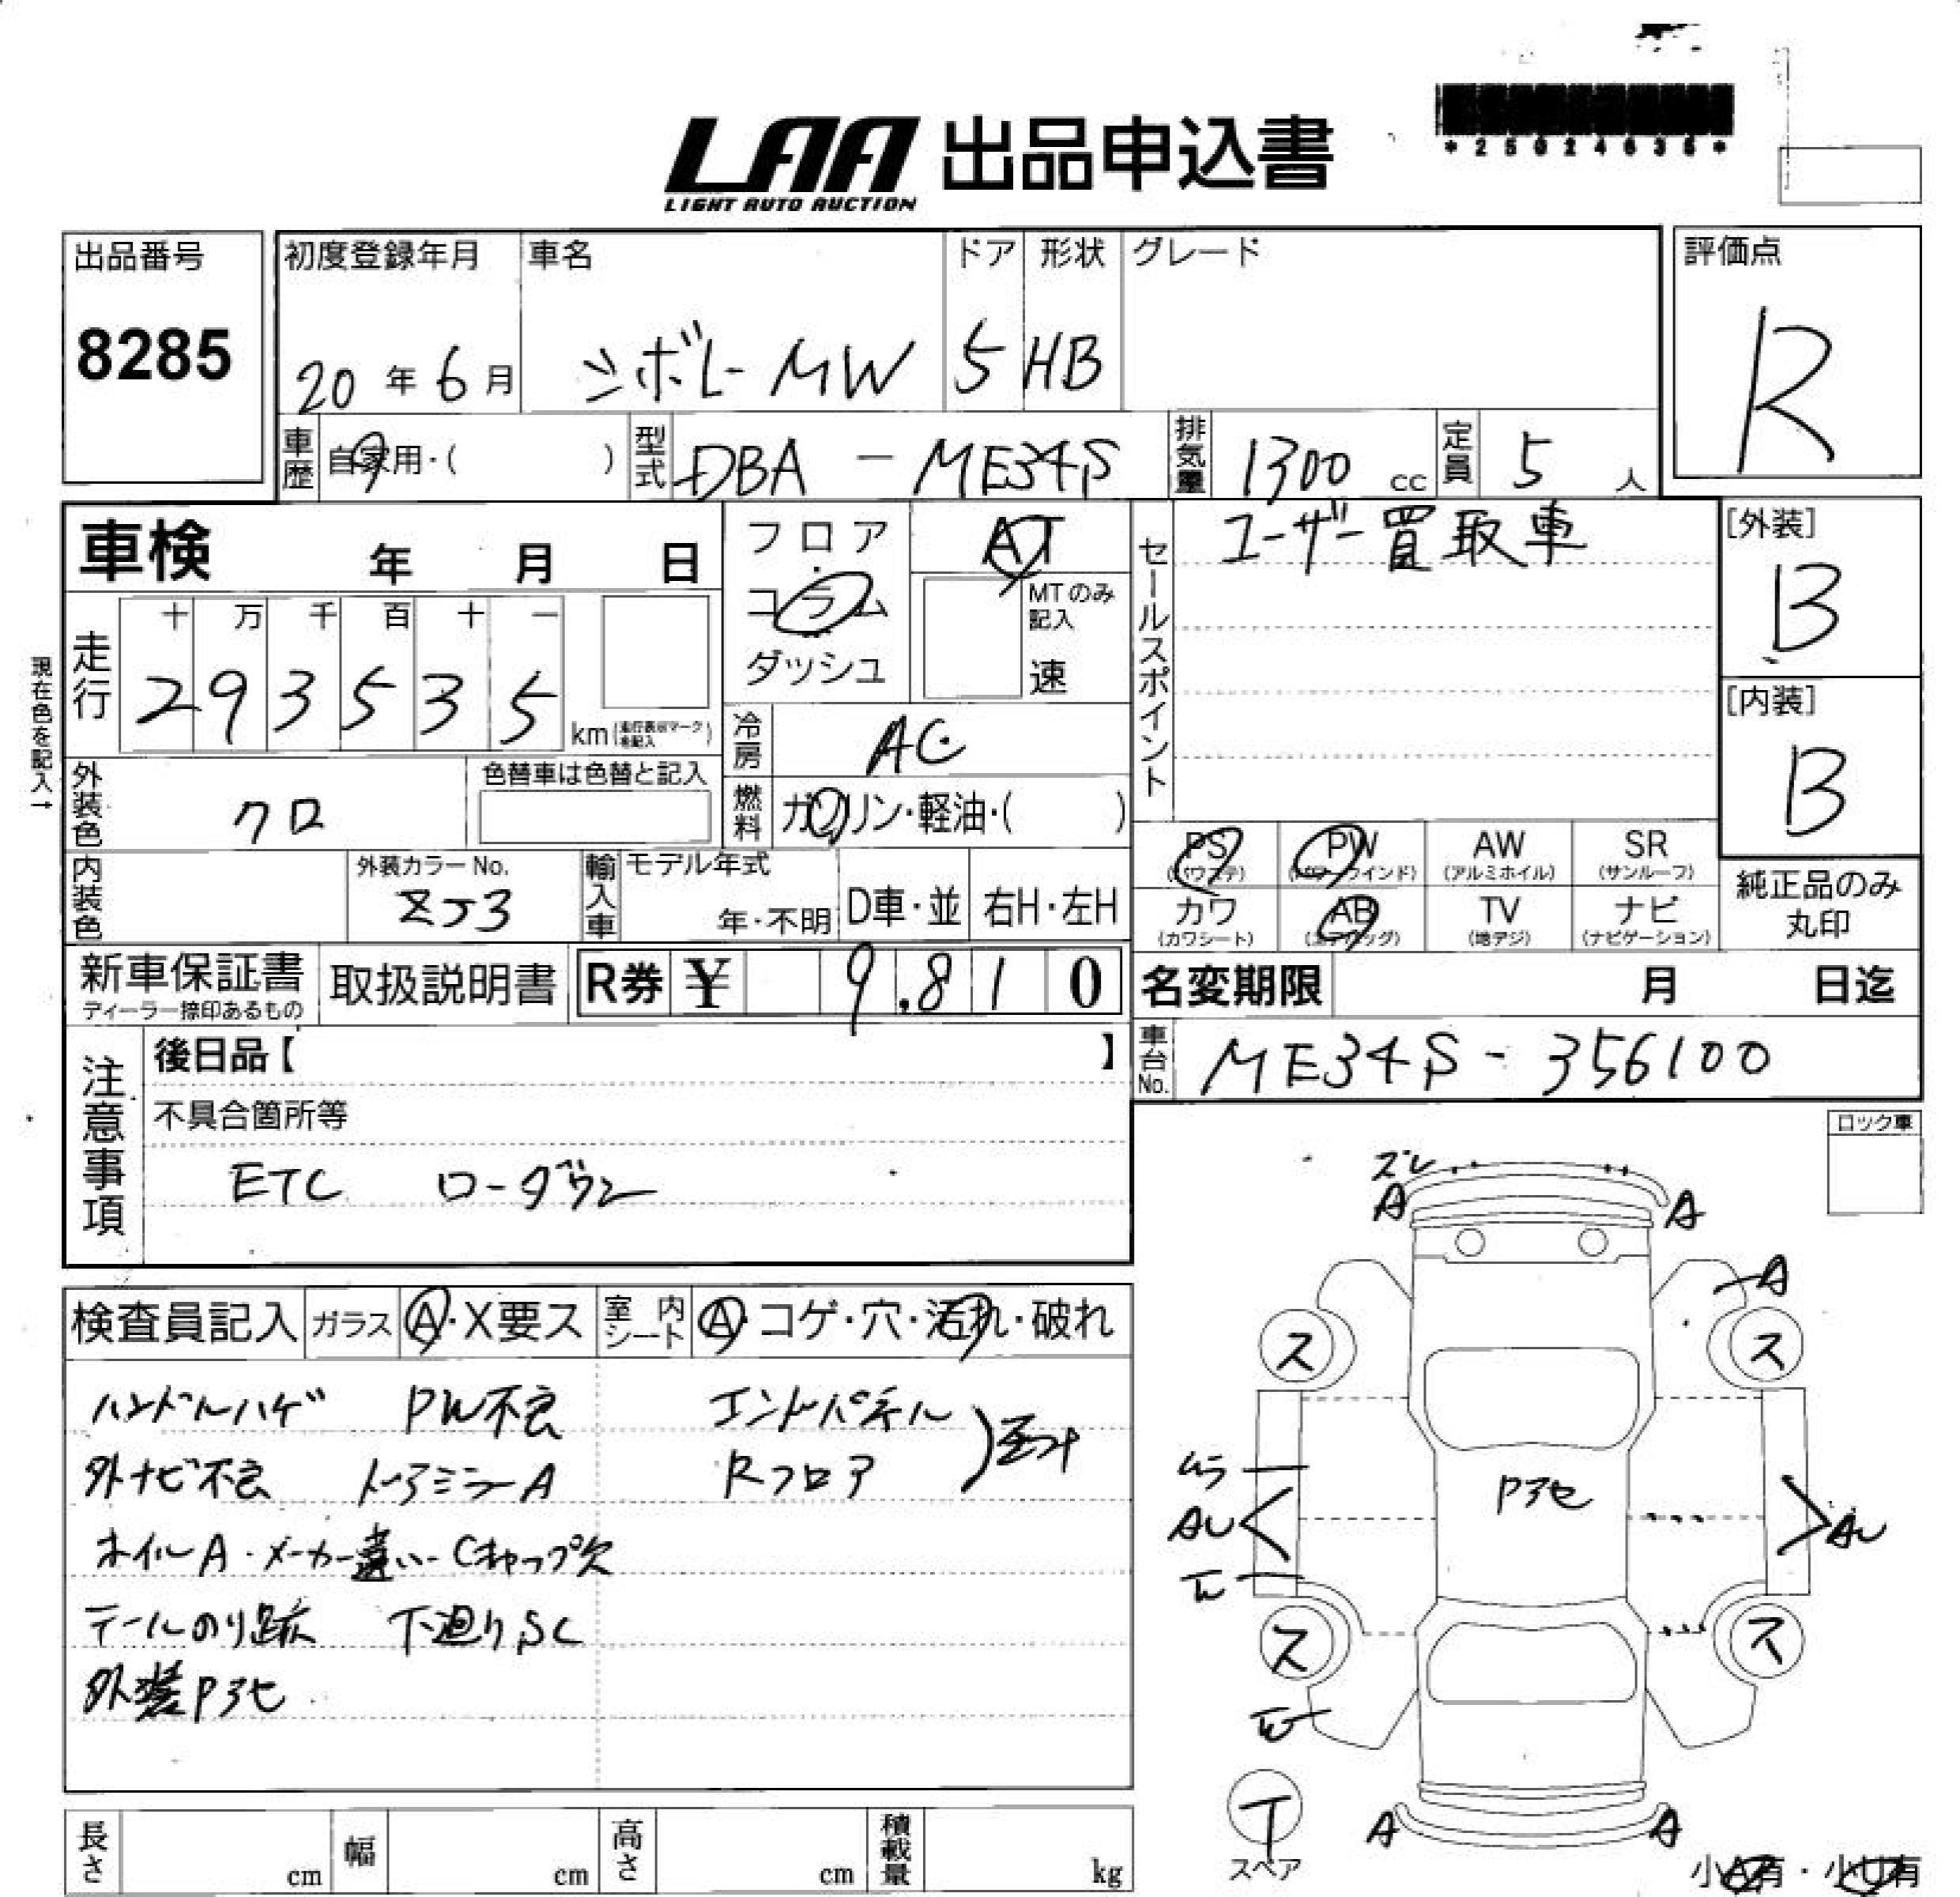 LAA 出品申込書
LIGHT AUTO AUCTION
*25024636*
出品番号
8285
初度登録年月 車名 ドア 形状 グレード
20年6月 シボレーMW 5 HB
評価点
R
車歴 自家用・( ) 型式 DBA - ME34S 排気量 1300 cc 定員 5 人
車検 年 月 日
フロア
コラム
ダッシュ
AT
MTのみ記入
速
セールスポイント
ユーザー買取車
[外装]
B
[内装]
B
現在色を記入→
走行
十 万 千 百 十 一
2 9 3 5 3 5 km (走行表示マークを記入)
冷房 AC
外装色 クロ
色替車は色替と記入
燃料 ガソリン・軽油・( )
内装色
外装カラーNo.
ZJ3
輸入車 モデル年式
年・不明 D車・並 右H・左H
PS (パワステ) PW (パワーウインド) AW (アルミホイル) SR (サンルーフ)
カワ (カワシート) AB (エアバッグ) TV (地デジ) ナビ (ナビゲーション)
純正品のみ丸印
新車保証書
ディーラー捺印あるもの
取扱説明書
R券 ¥ 9,810
名変期限 月 日迄
車台No. ME34S - 356100
注意事項
後日品【 】
不具合箇所等
ETC ローダウン
ロック車
検査員記入 ガラス A・X要ス 室内シート A・コゲ・穴・汚れ・破れ
ハンドルハゲ PW不良 エンドパネル
外ナビ不良 ドアミラーA Rフロア
ホイルA・メーカー違い・Cキャップ欠
テールのり跡 下廻りSC
外装Pアセ
ズレ
A A
A
ス ス
ムラ
Pアセ
AU AU
ス ス
T
スペア
A A
小A有・小U有
長さ cm 幅 cm 高さ cm 積載量 kg